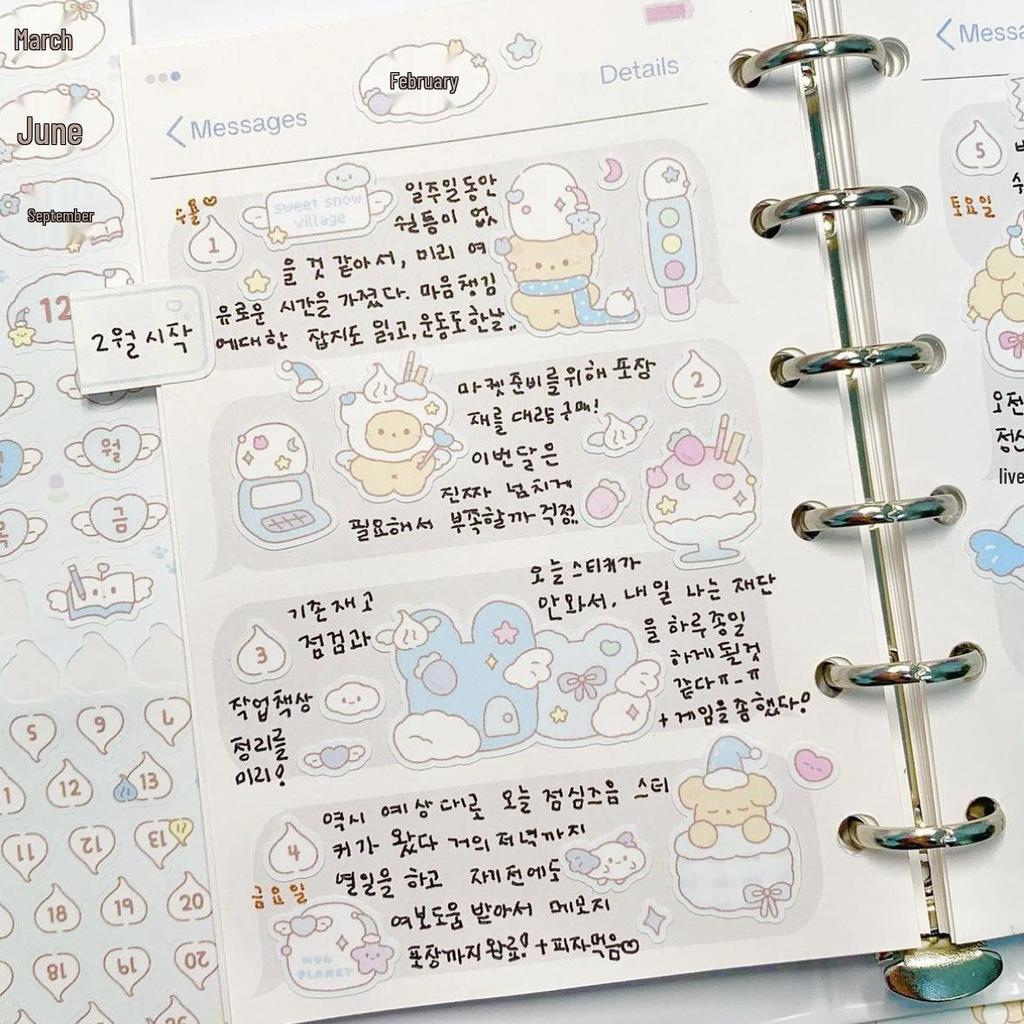 March
June
September
12
2월 시작
월
금
5
9
6
12
13
11
12
13
18
19
20
18
19
20
February
Messages
Details
수욜♡
1
sweet snow
village
일주일동안
쉴틈이 없
을 것 같아서, 미리 여
유로운 시간을 가졌다. 마음챙김
에대한 잡지도 읽고, 운동도한날..
2
마켓준비를위해 포장
재를 대량구매!
이번달은
진짜 넘치게
필요해서 부족할까 걱정..
3
기존재고
점검과
작업책상
정리를
미리!
오늘 스티커가
안와서, 내일 나는 재단
을 하루종일
하게 될것
같다ㅠ-ㅠ
+ 게임을좀했다!
4
금요일
역시 예상대로 오늘 점심즈음 스티
커가 왔다 거의저녁까지
열일을 하고 자기전에도
여보도움 받아서 메모지
포장까지완료! + 피자먹음♡
HUG
PLANET
Messa
5
토요일
오전
정신
live